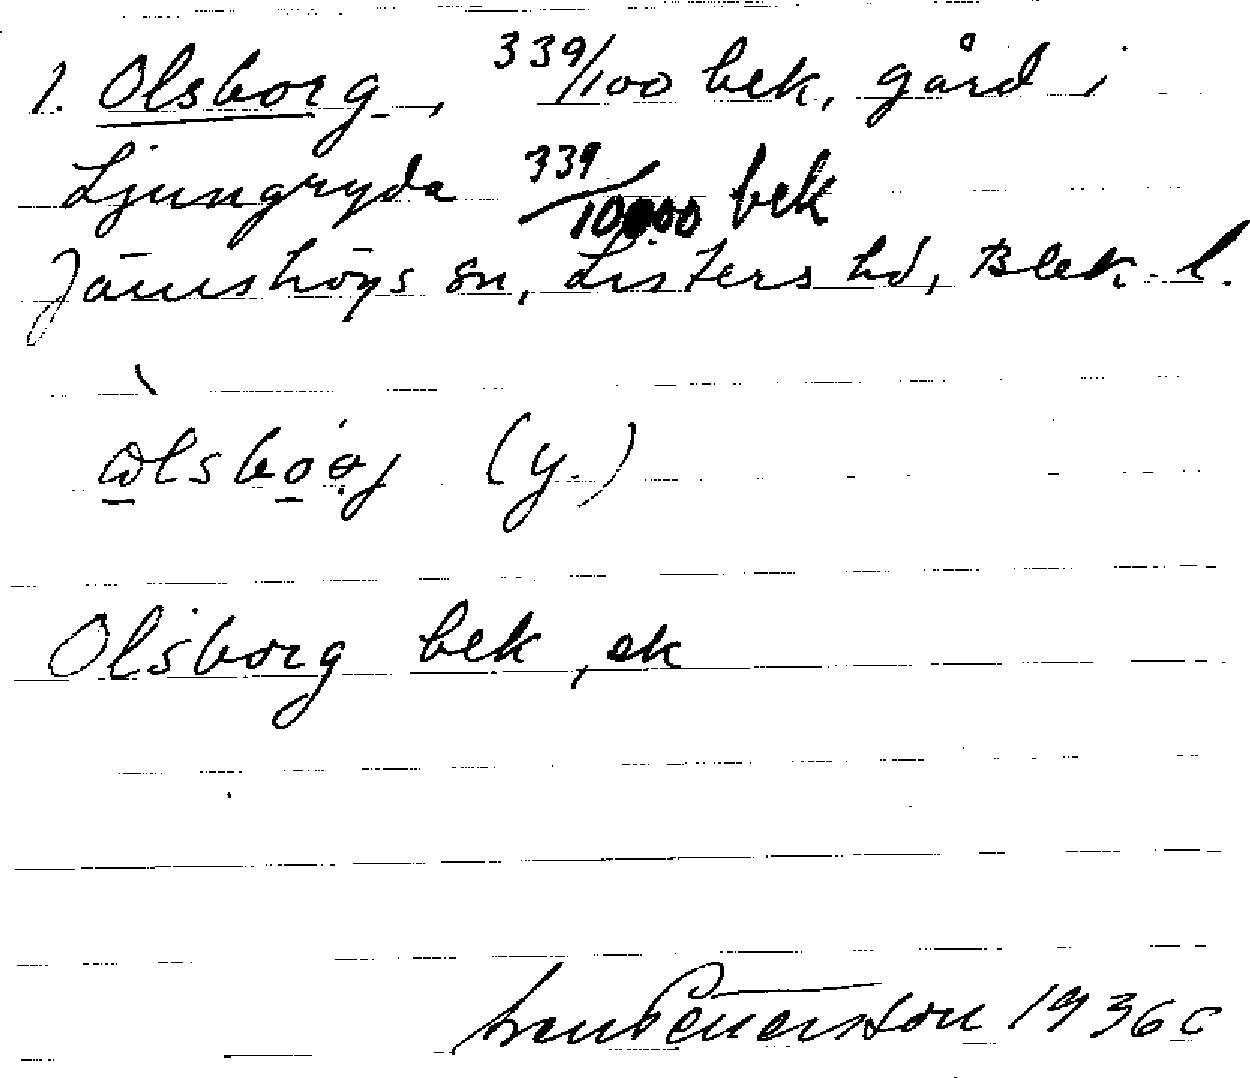 1. Olsborg, 339/100 bek, gård i
Ljungryda 339/10000 bek
Jämshögs sn, Listers hd, Blek. l.
(y.)
Olsborg bek, ek
Pettersson 1936